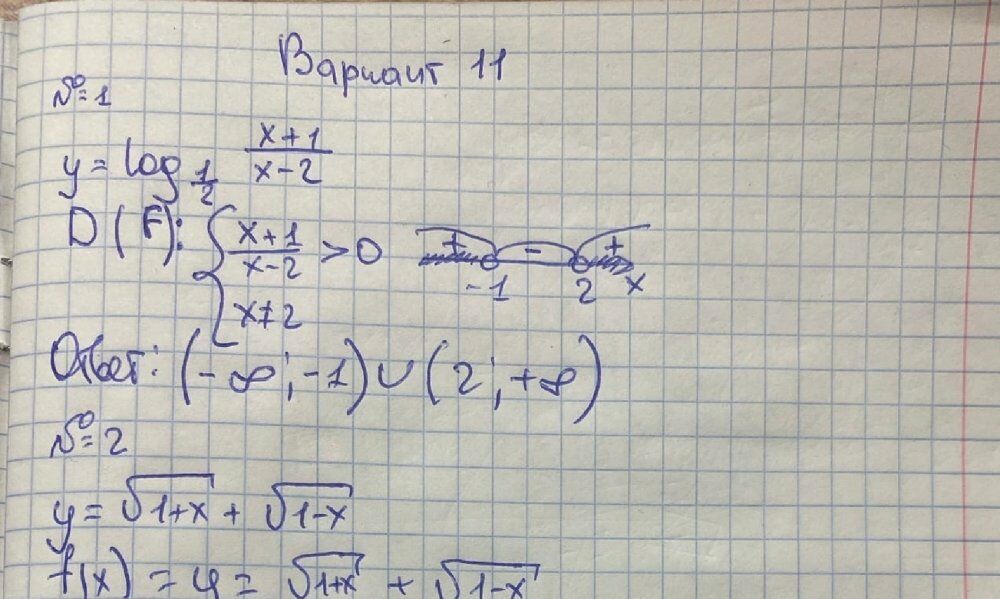 Вариант 11
№1
y = log_{1/2} \frac{x+1}{x-2}
D(F): { \frac{x+1}{x-2} > 0   + - + -1 2 x
x ≠ 2
Ответ: (-∞; -1) ∪ (2; +∞)
№2
y = √(1+x) + √(1-x)
f(x) = y = √(1+x) + √(1-x)